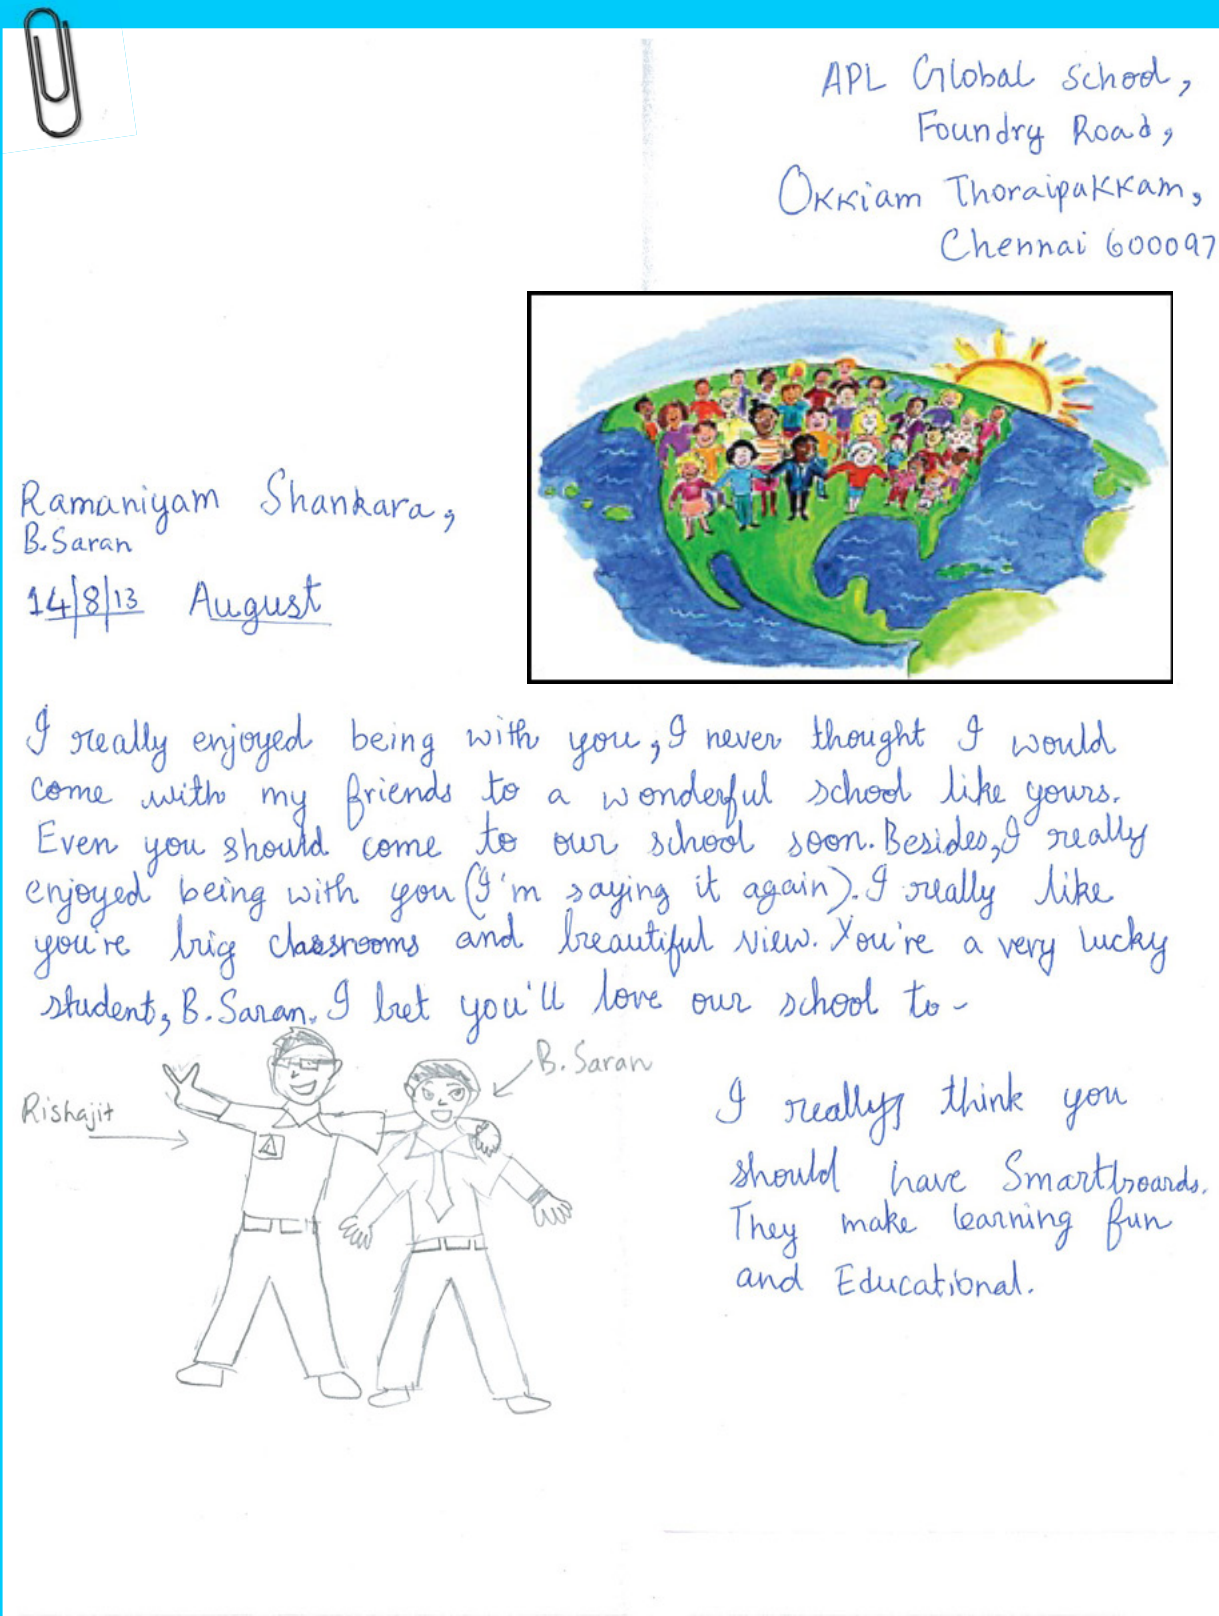 APL Global School,
Foundry Road,
Okkiam Thoraipakkam,
Chennai 600097
Ramaniyam Shankara,
B.Saran
14/8/13 August
I really enjoyed being with you, I never thought I would
come with my friends to a wonderful school like yours.
Even you should come to our school soon. Besides, I really
enjoyed being with you (I'm saying it again). I really like
you're big classrooms and beautiful view. You're a very lucky
student, B.Saran. I bet you'll love our school to-
B.Saran
Rishajit
I really think you
should have Smartboards.
They make learning fun
and Educational.